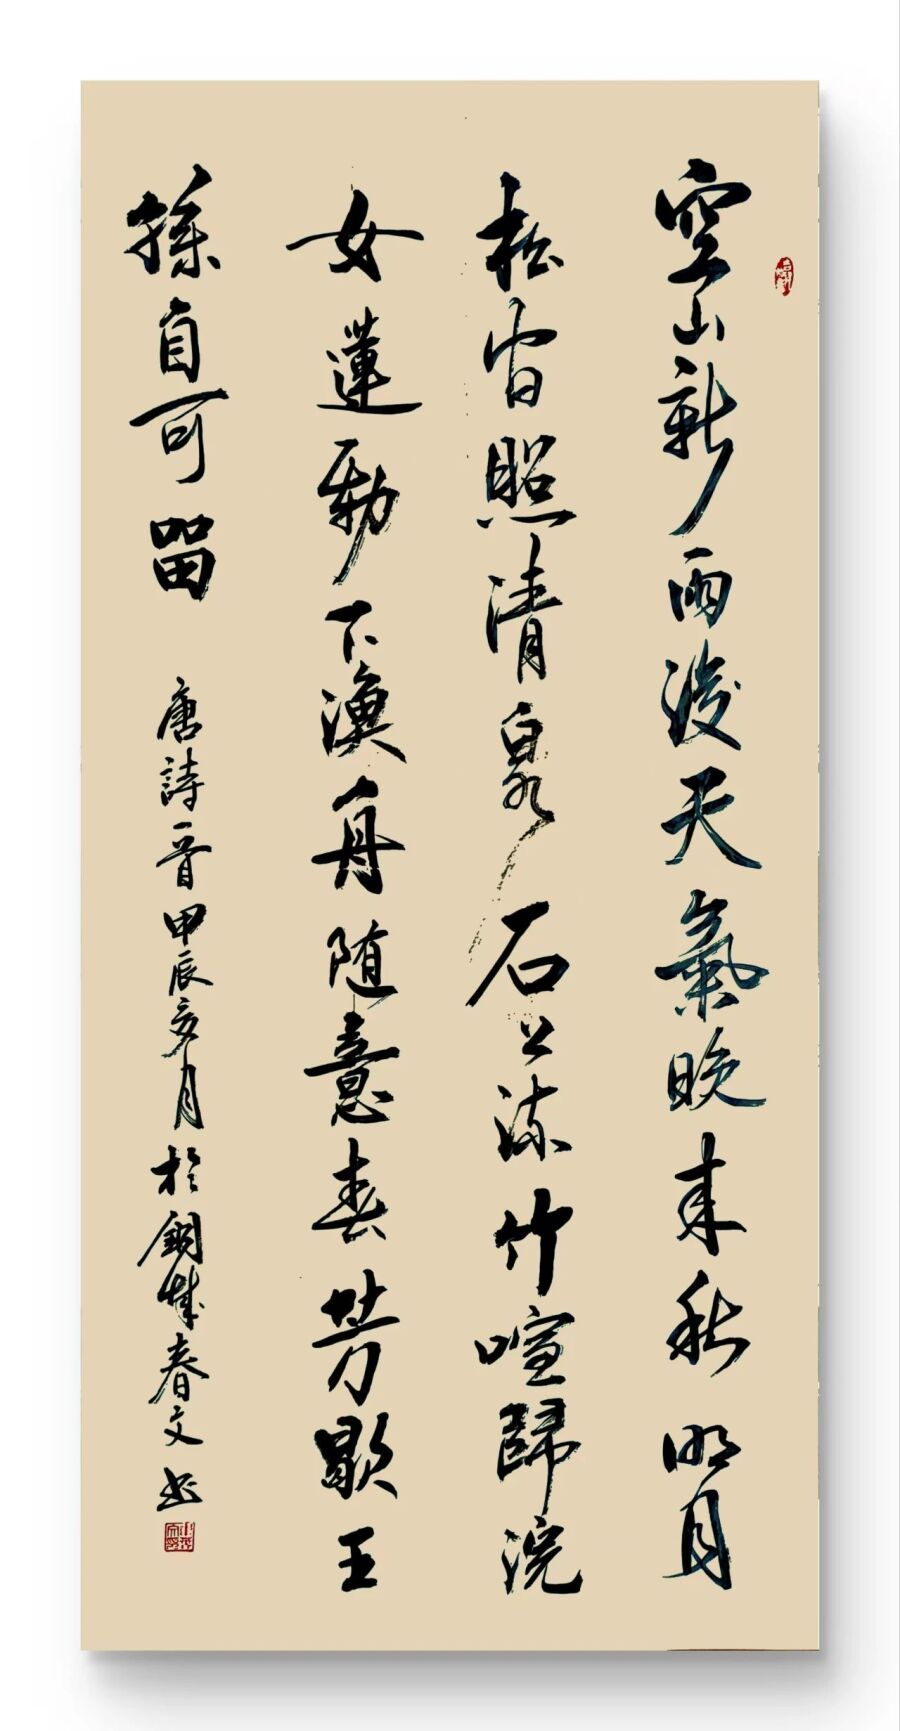 空山新雨後天氣晚來秋明月
松間照清泉石上流竹喧歸浣
女蓮動下漁舟随意春芳歇王
孫自可留 唐詩一首甲辰亥月於銅城春文书